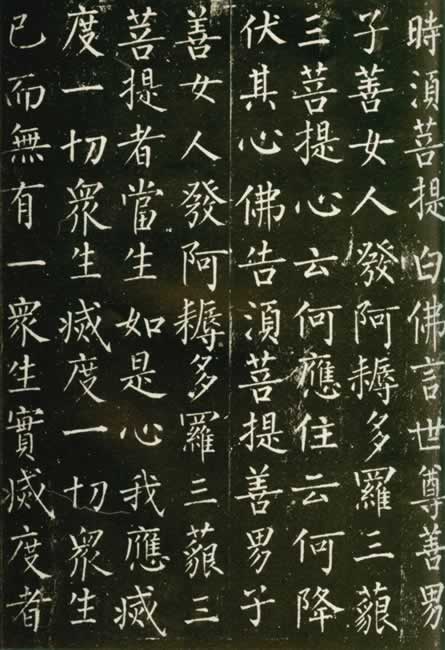 時須菩提白佛言世尊善男
子善女人發阿耨多羅三藐
三菩提心云何應住云何降
伏其心佛告須菩提善男子
善女人發阿耨多羅三藐三
菩提者當生如是心我應滅
度一切衆生滅度一切衆生
已而無有一衆生實滅度者